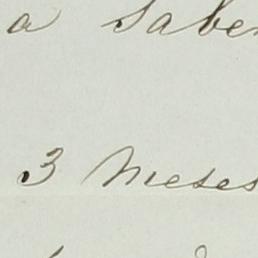 a saber
3 Meses